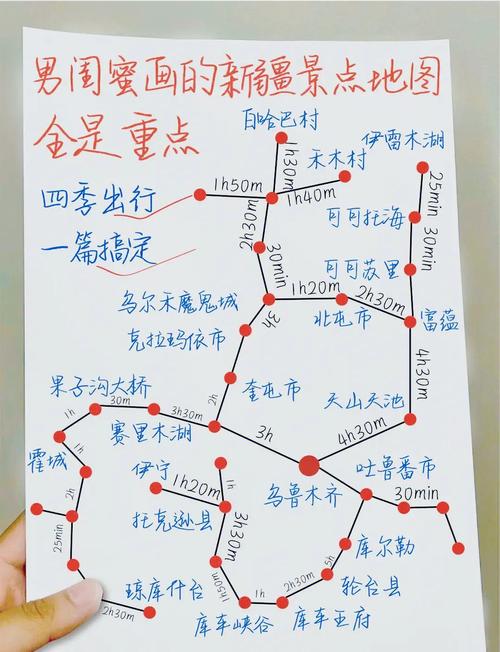 男闺蜜画的新疆景点地图
全是重点
四季出行
一篇搞定
白哈巴村
伊雷木湖
禾木村
1h30m
25min
1h50m
1h40m
可可托海
2h30m
30min
30min
可可苏里
乌尔禾魔鬼城
1h20m
2h30m
富蕴
北屯市
克拉玛依市
3h
4h30m
奎屯市
2h
果子沟大桥
30m
3h30m
天山天池
1h
赛里木湖
3h
4h30m
霍城
1h
伊宁
1h
乌鲁木齐
吐鲁番市
2h
1h20m
30min
托克逊县
3h30m
25min
库尔勒
琼库什台
2h30m
5h
轮台县
1h
2h30m
库车峡谷
库车王府